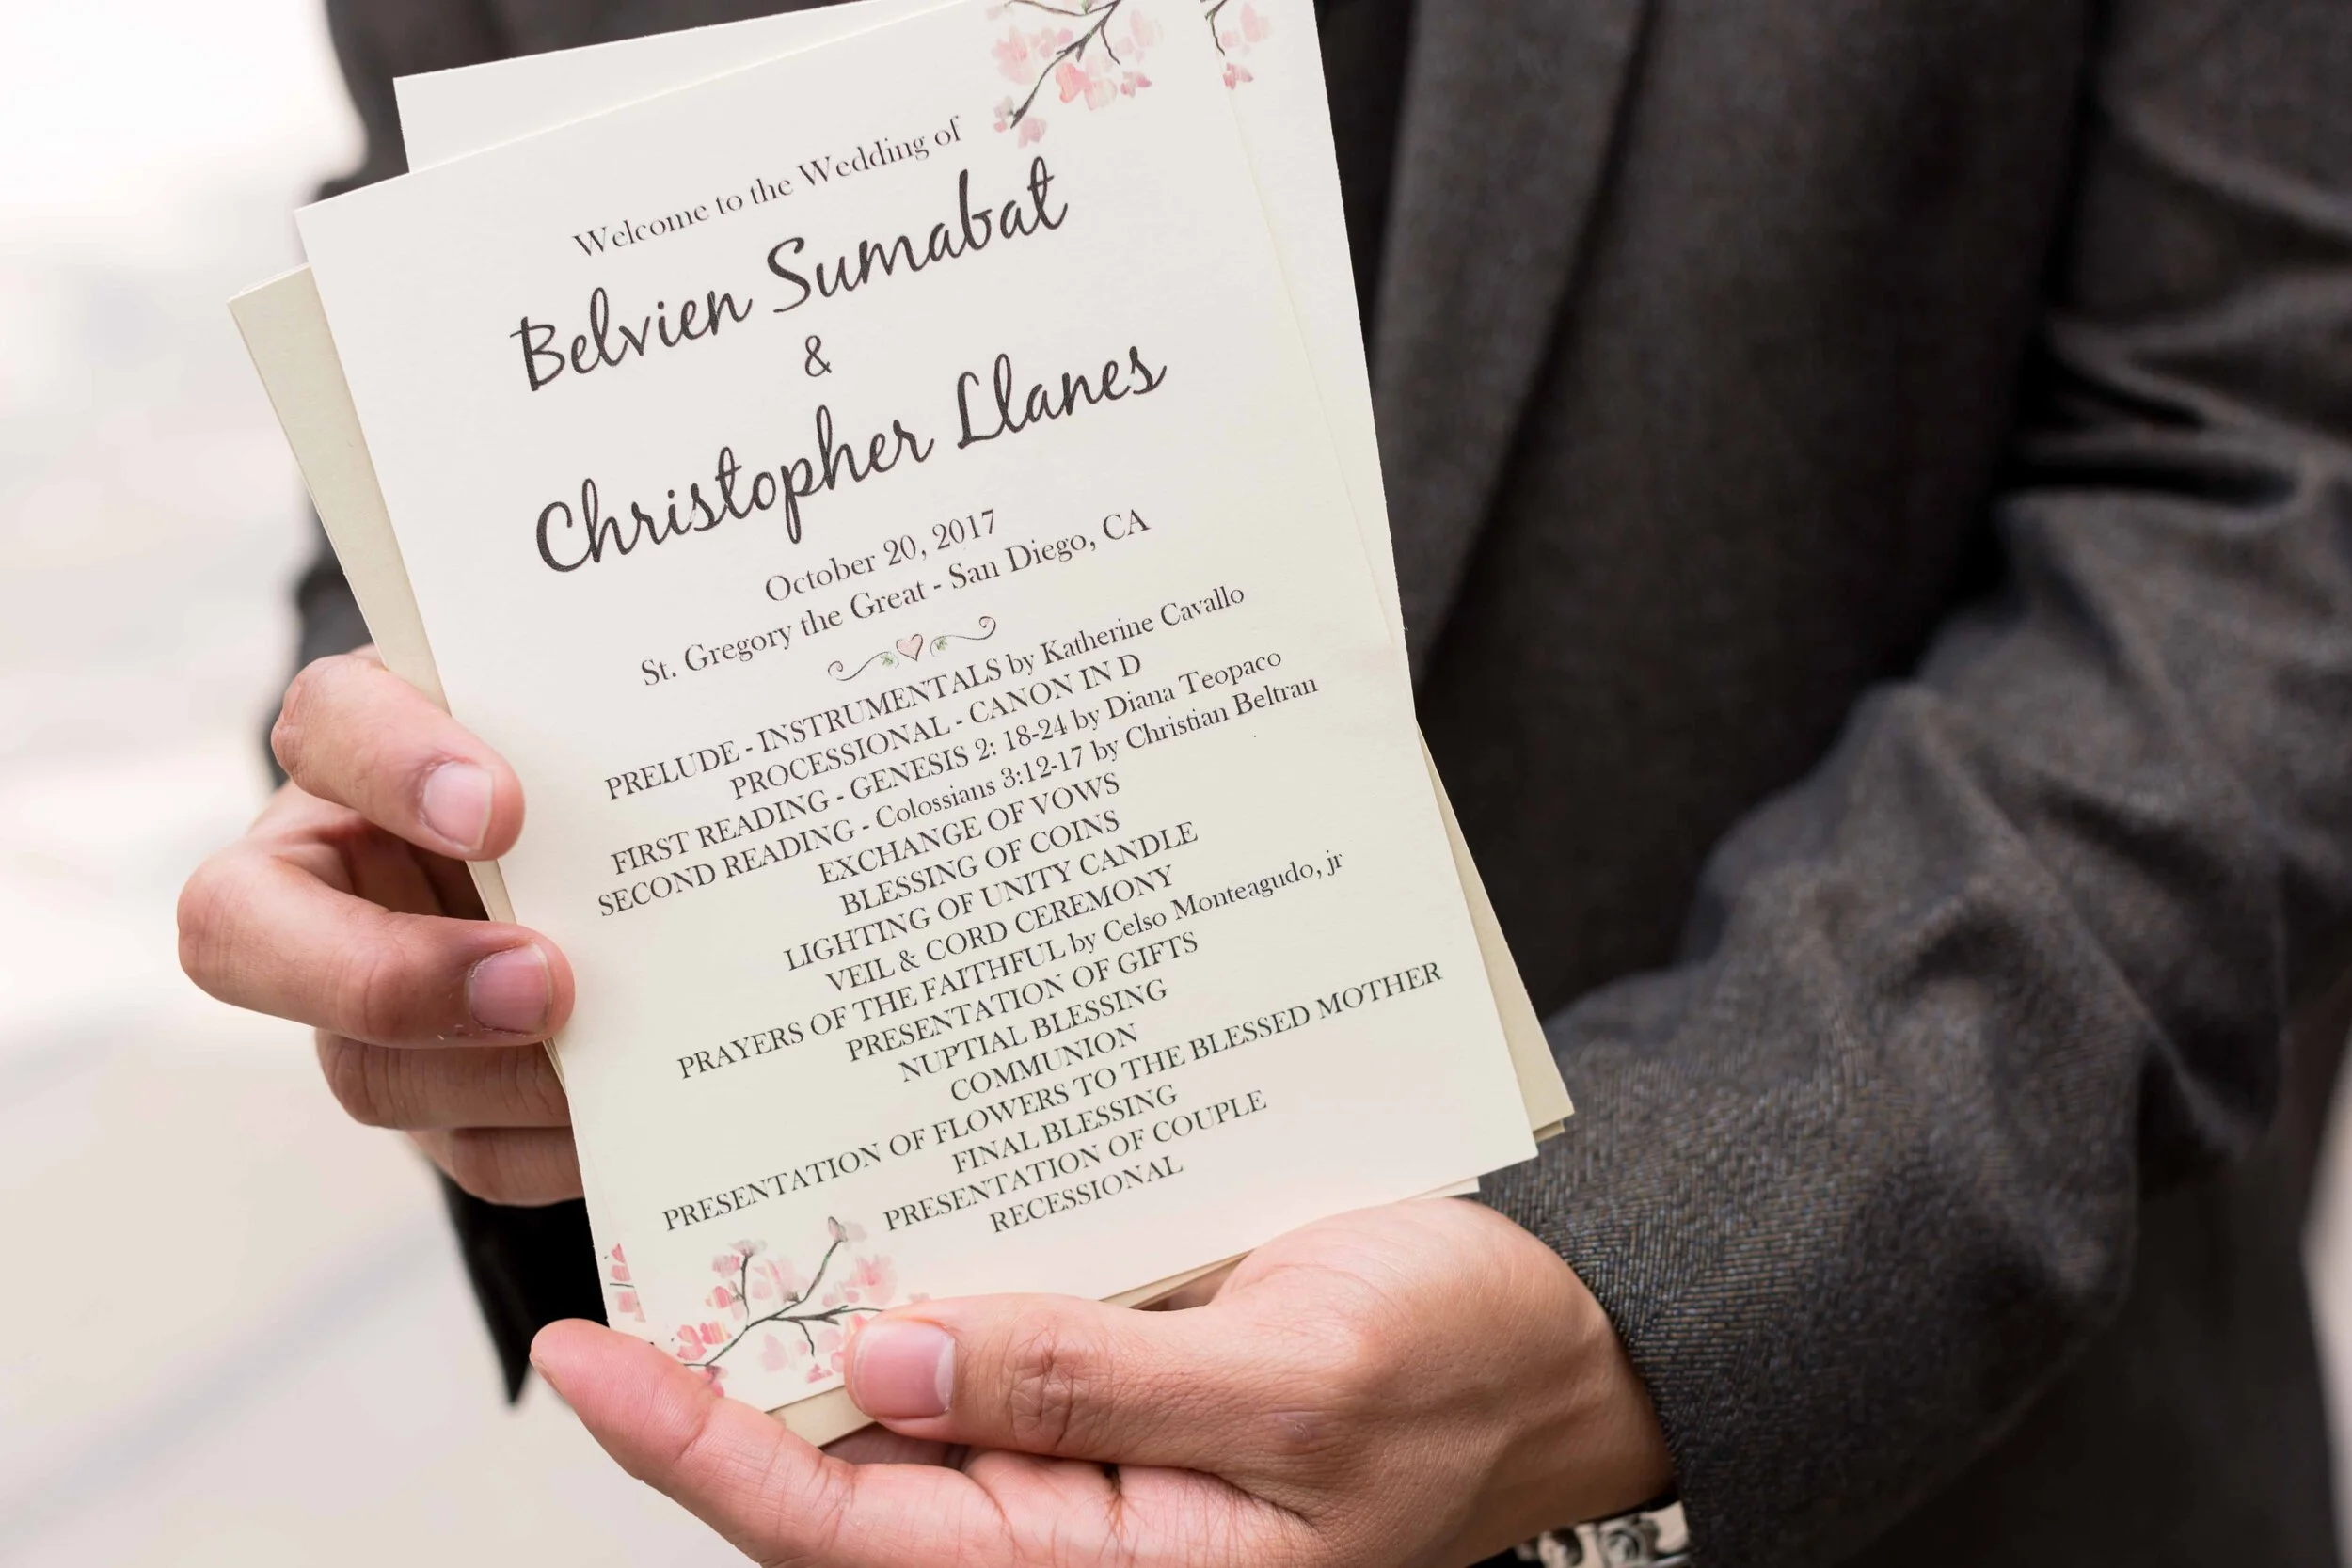 Welcome to the Wedding of
Belvien Sumabat
&
Christopher Llanes
October 20, 2017
St. Gregory the Great - San Diego, CA
PRELUDE - INSTRUMENTALS by Katherine Cavallo
PROCESSIONAL - CANON IN D
FIRST READING - GENESIS 2: 18-24 by Diana Teopaco
SECOND READING - Colossians 3:12-17 by Christian Beltran
EXCHANGE OF VOWS
BLESSING OF COINS
LIGHTING OF UNITY CANDLE
VEIL & CORD CEREMONY
PRAYERS OF THE FAITHFUL by Celso Monteagudo, jr
PRESENTATION OF GIFTS
NUPTIAL BLESSING
COMMUNION
PRESENTATION OF FLOWERS TO THE BLESSED MOTHER
FINAL BLESSING
PRESENTATION OF COUPLE
RECESSIONAL